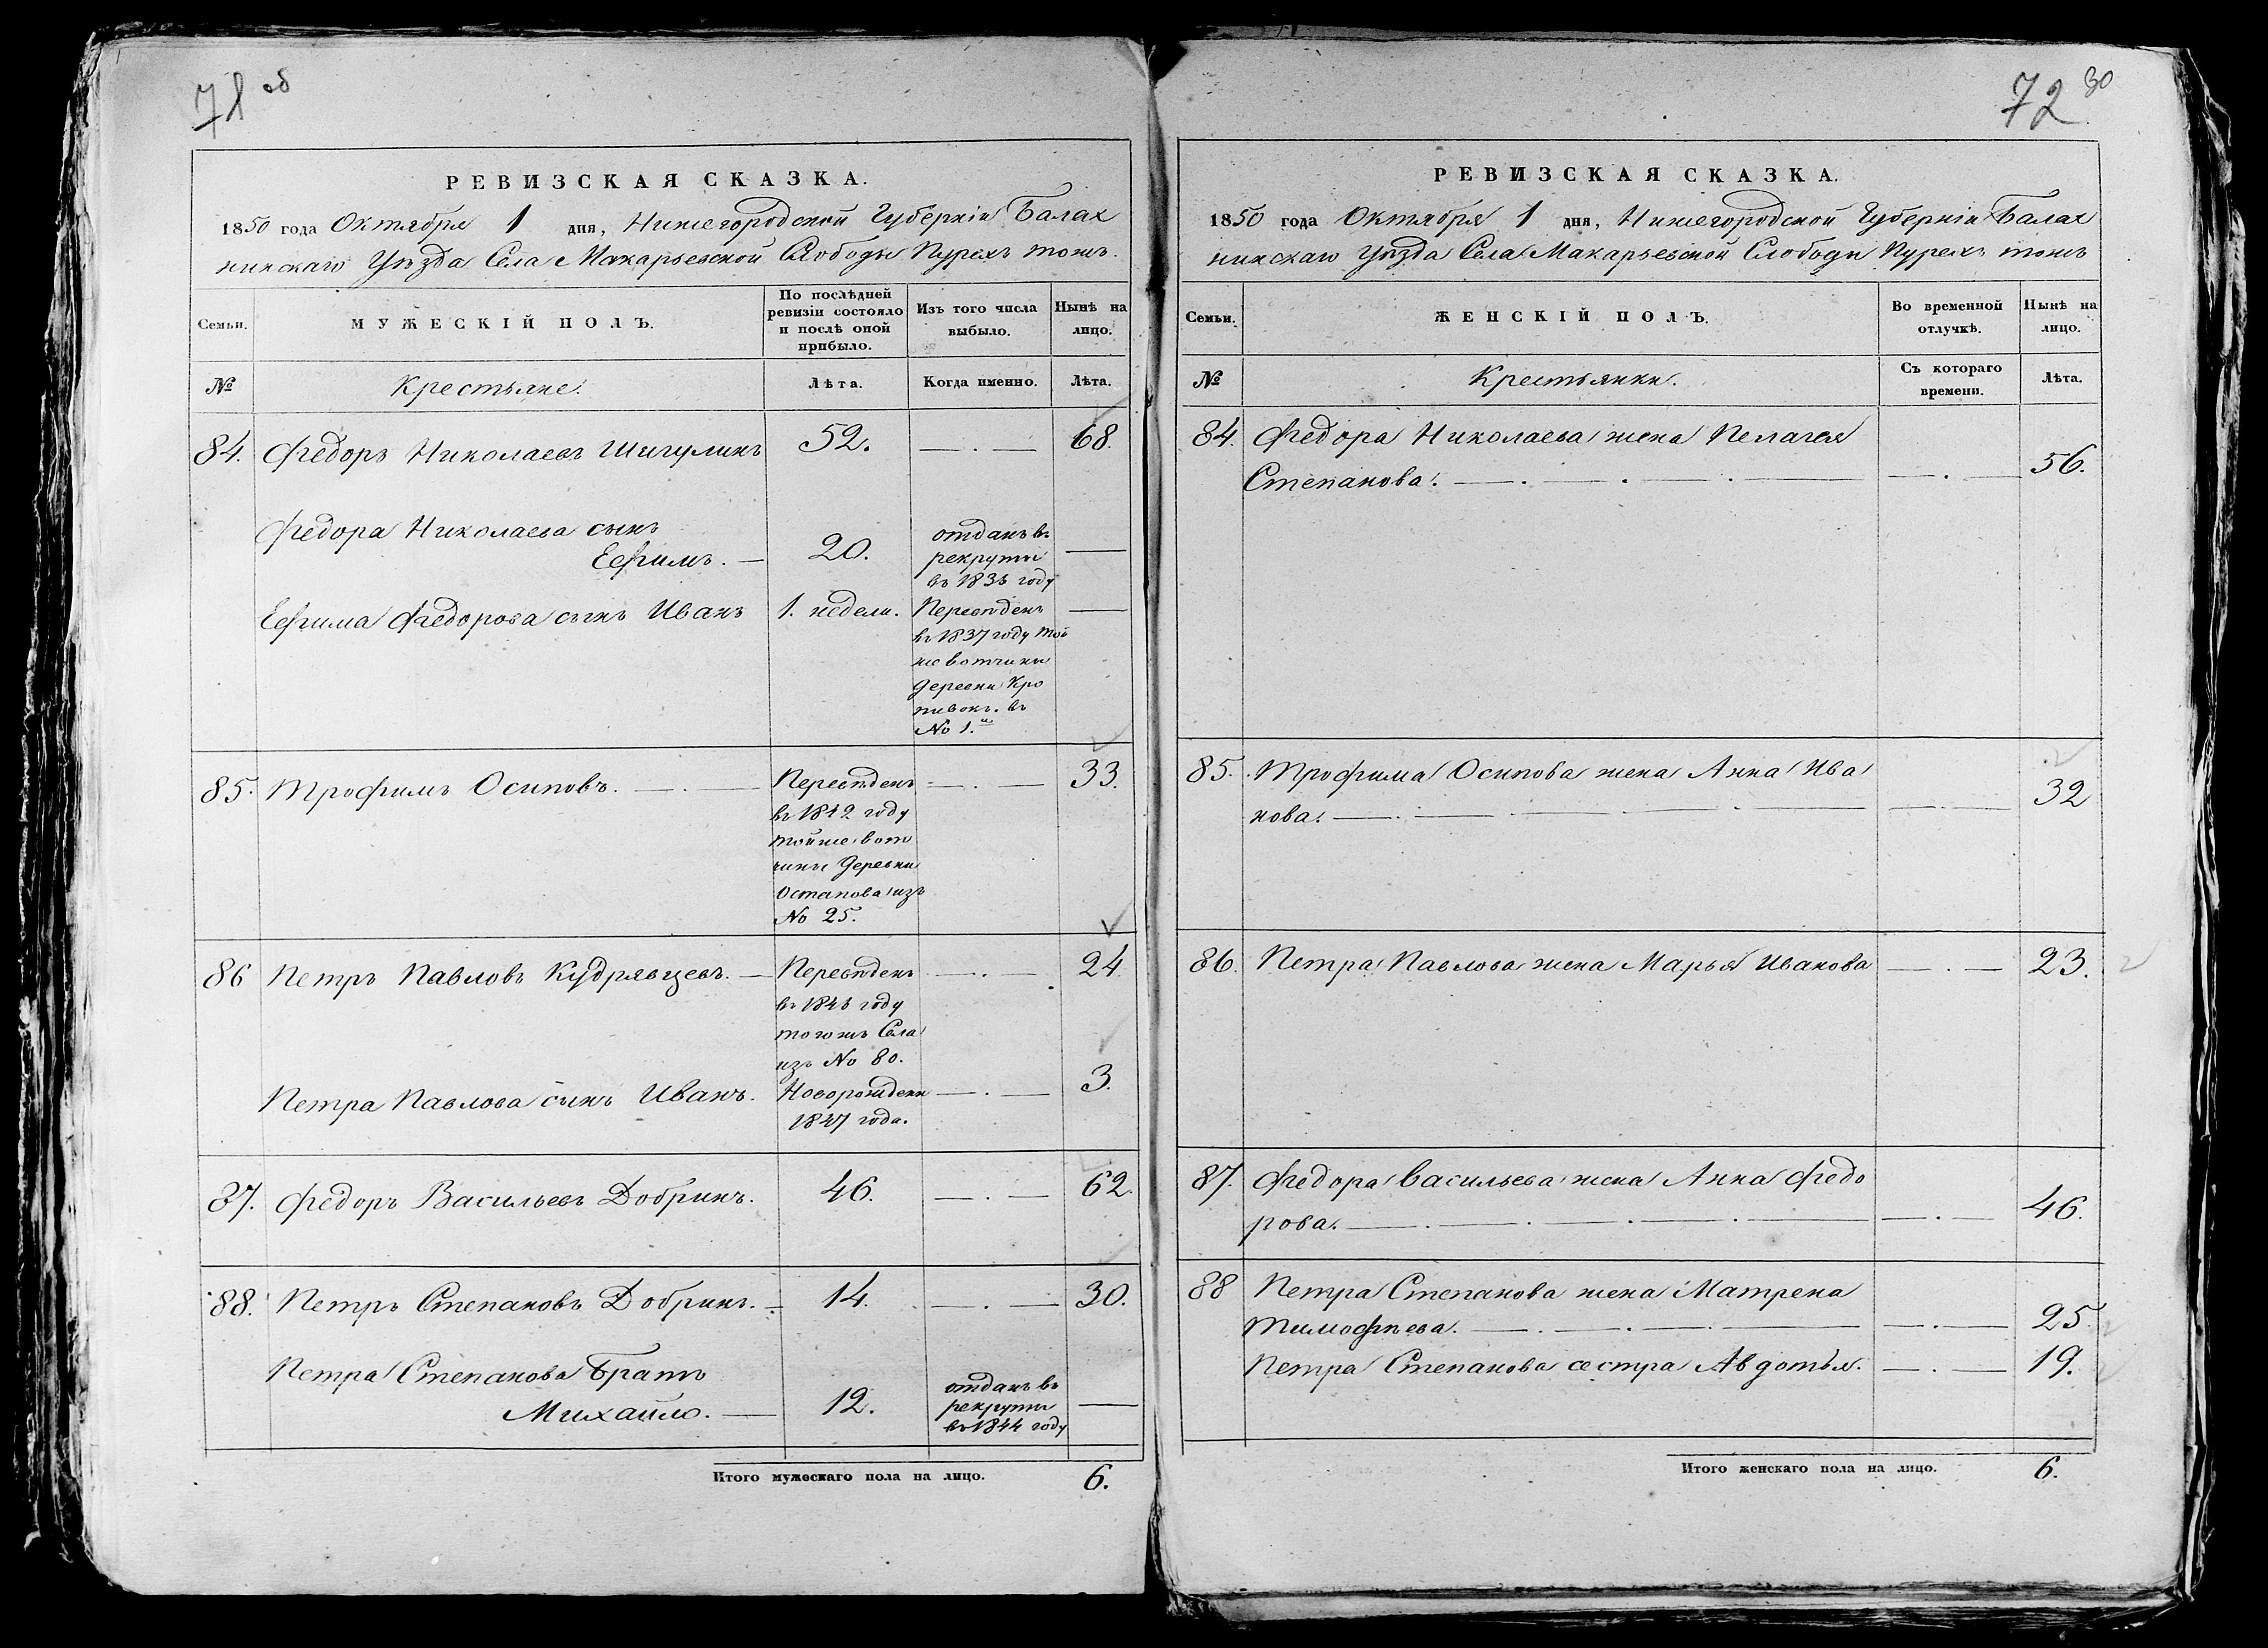 71 об
РЕВИЗСКАЯ СКАЗКА.
1850 года Октября 1 дня, Нижегородской Губерніи Балах
нинскаго Уѣзда Села Макарьевской Слободы Пурехъ тожъ.
Семьи.
МУЖЕСКІЙ ПОЛЪ.
По послѣдней
ревизіи состояло
и послѣ оной
прибыло.
Изъ того числа
выбыло.
Нынѣ на
лицо.
№
Крестьяне.
Лѣта.
Когда именно.
Лѣта.
84. Федоръ Николаевъ Шигулинъ 52. 68.
Федора Николаева сынъ
Ефимъ. 20.
отданъ въ
рекруты
въ 1835 году
Ефима Федорова сынъ Иванъ 1. недели.
Переведенъ
въ 1837 году той
же вотчины
деревни Кро
пивокъ. въ
№ 1.й
85. Трофимъ Осиповъ. 33.
Переведенъ
въ 1842 году
тойже вот
чины деревни
Остапова изъ
№ 25.
86 Петръ Павловъ Кудрявцевъ. 24
Переведенъ
въ 1846 году
тогожъ Села
изъ № 80.
Петра Павлова сынъ Иванъ. 3.
Новорожденъ
1847 года.
87. Федоръ Васильевъ Добринъ. 46. 62.
88. Петръ Степановъ Добринъ. 14. 30.
Петра Степанова братъ
Михайло. 12.
отданъ въ
рекруты
въ 1844 году
Итого мужескаго пола на лицо. 6.
72 30
РЕВИЗСКАЯ СКАЗКА.
1850 года Октября 1 дня, Нижегородской Губерніи Балах
нинскаго Уѣзда Села Макарьевской Слободы Пурехъ тожъ
Семьи.
ЖЕНСКІЙ ПОЛЪ.
Во временной
отлучкѣ.
Нынѣ на
лицо.
№
Крестьянки.
Съ котораго
времени.
Лѣта.
84. Федора Николаева жена Пелагея
Степанова. 56.
85. Трофима Осипова жена Анна Ива
нова. 32
86. Петра Павлова жена Марья Иванова 23.
87. Федора Васильева жена Анна Федо
рова. 46.
88 Петра Степанова жена Матрена
Тимофѣева. 25.
Петра Степанова сестра Авдотья. 19.
Итого женскаго пола на лицо. 6.